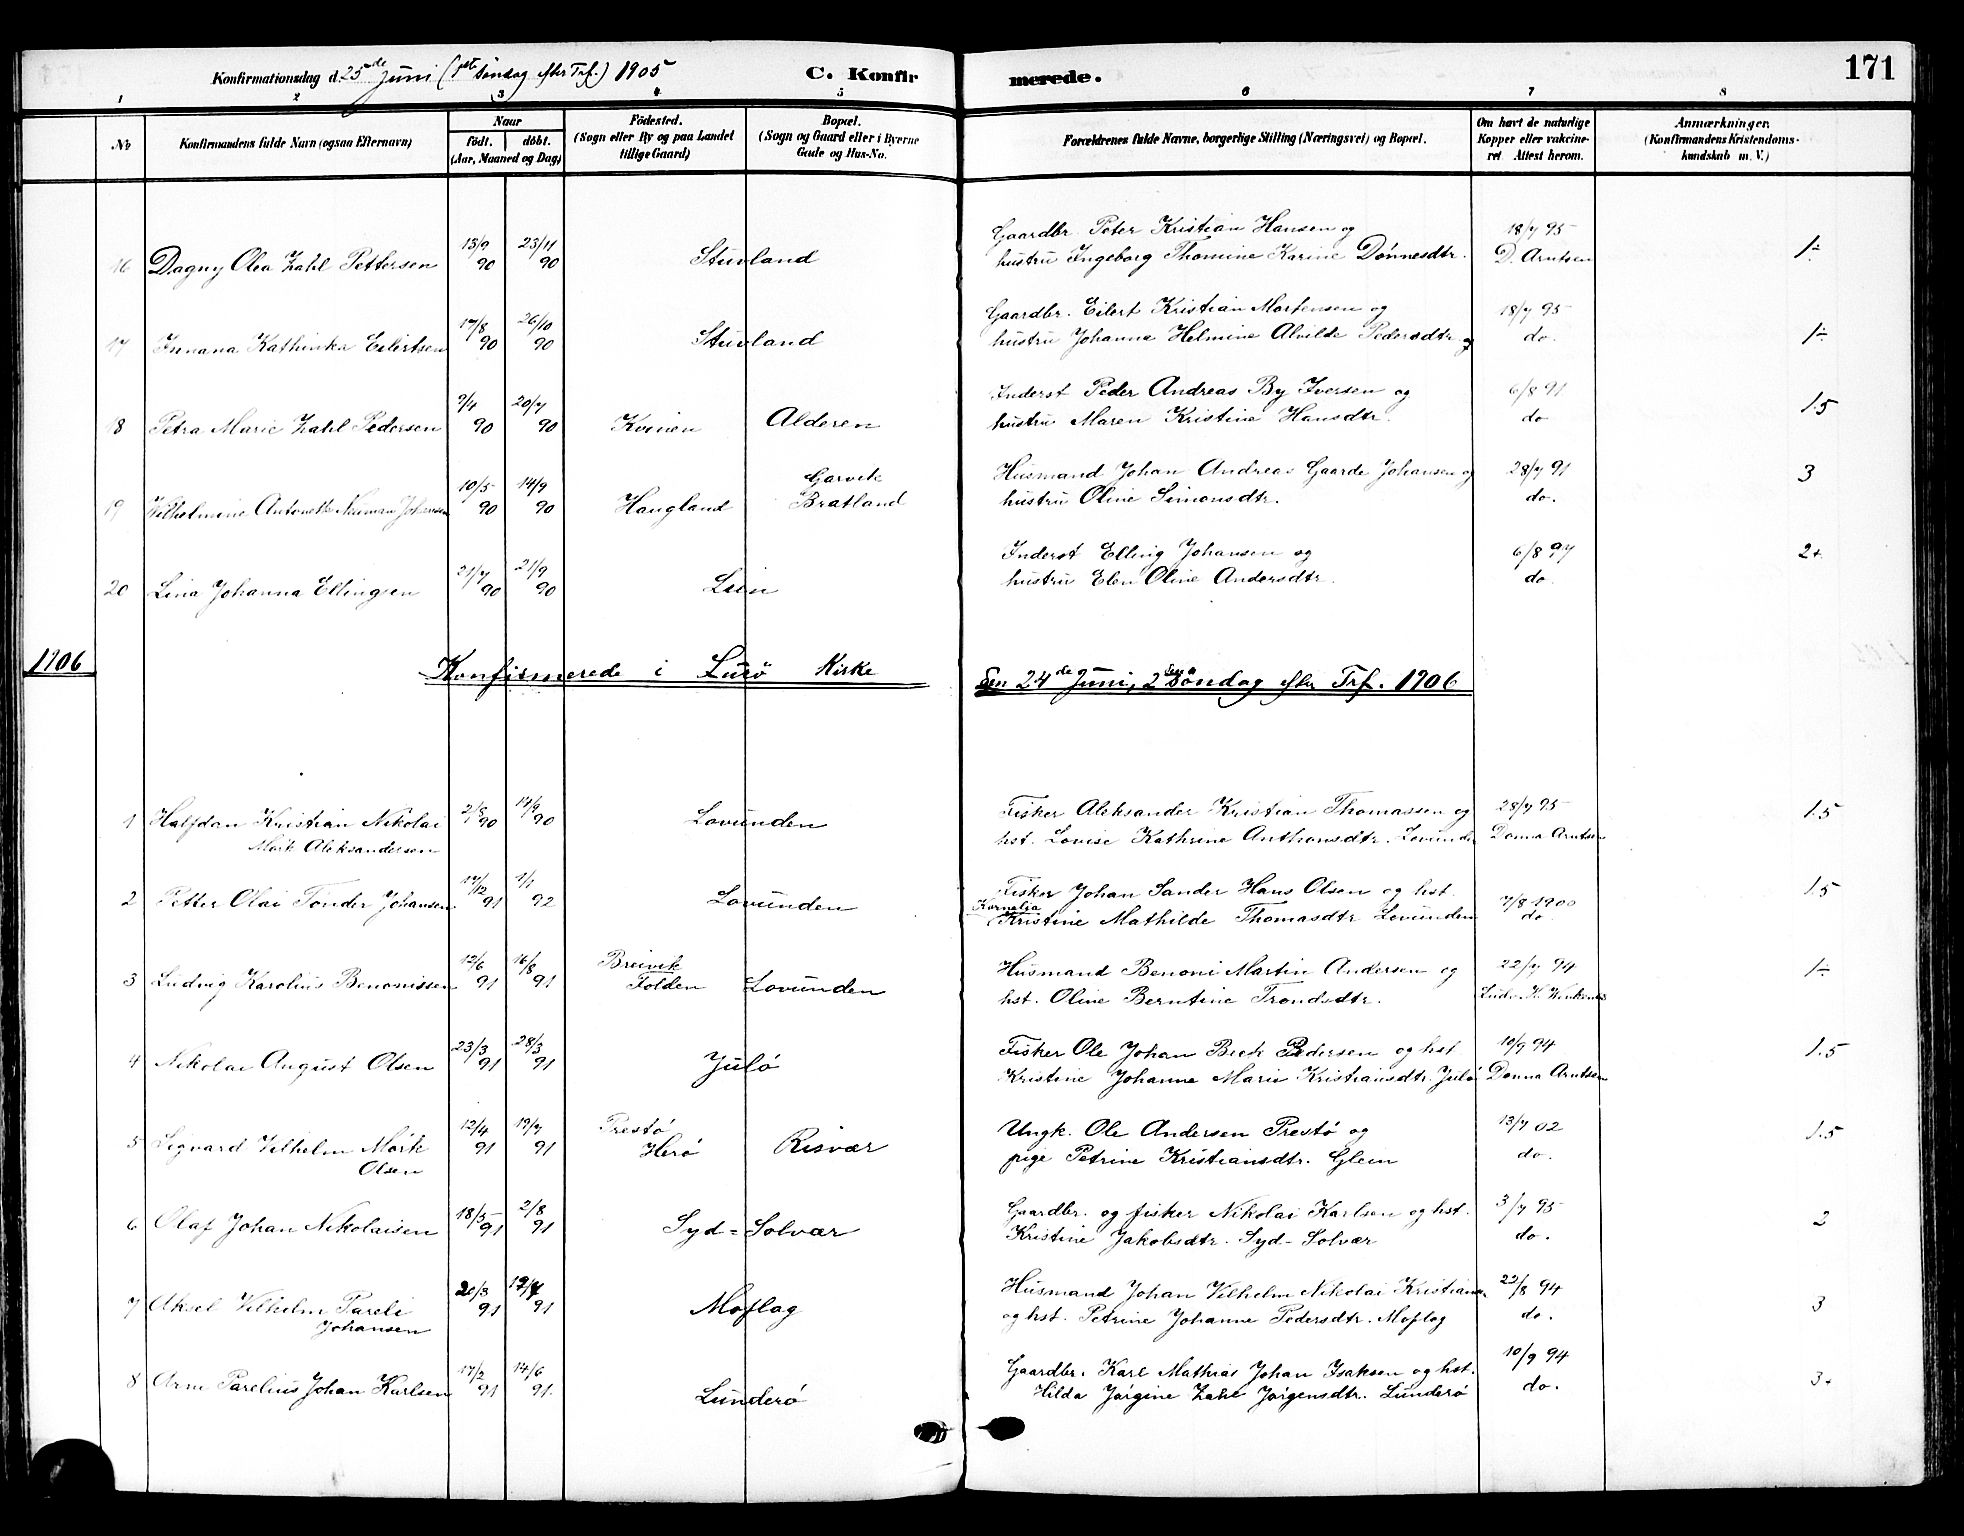 Konfirmationsdag d. 25de Juni (1ste Søndag efter Trf.) 1905 C. Konfirmerede. 171
1 2 3 4 5 6 7 8
No Konfirmandens fulde Navn (ogsaa Efternavn) Naar födt. döbt. (Aar, Maaned og Dag) Födested. (Sogn eller By og paa Landet tillige Gaard) Bopæl. (Sogn og Gaard eller i Byerne Gade og Hus-No. Forældrenes fulde Navne, borgerlige Stilling (Næringsvei) og Bopæl. Om havt de naturlige Kopper eller vakcineret Attest herom. Anmærkninger. (Konfirmandens Kristendomskundskab m. V.)
16 Dagny Olea Zahl Pettersen 13/9 90 23/11 90 Stuvland Gaardbr. Peter Kristian Hansen og 18/7 95 1÷
hustru Ingeborg Thomine Karine Dønnesdtr. D. Arntsen
17 Innana Kathinka Eilertsen 17/8 90 26/10 90 Stuvland Gaardbr. Eilert Kristian Mortensen og 18/7 95 1÷
hustru Johanna Helmine Alvilde Pedersdtr. og do.
18 Petra Marie Zahl Pedersen 9/4 90 20/7 90 Kvinen Alderen Inderst Peder Andreas By Iversen og 6/8 91 1.5
hustru Maren Kristine Hansdtr. do
19 Vilhelmine Antonette Neuman Johansen 10/5 90 14/9 90 Haugland Gjervik Bratland Husmand Johan Andreas Gaarde Johansen og 28/7 91 3
hustru Oline Simonsdtr. do.
20 Lina Johanna Ellingsen 21/7 90 21/9 90 Lein Inderst Elling Johansen og 6/8 97 2+
hustru Elen Oline Andersdtr. do.
1906 Konfirmerede i Lurø Kirke den 24de Juni, 2den Søndag efter Trf. 1906
1 Halfdan Kristian Nikolai 2/8 90 14/9 90 Lovunden Fisker Aleksander Kristian Thomassen og 28/7 95 1.5
Mørk Aleksandersen hst. Lovise Kathrine Anthonsdtr. Lovunden Donna Arntsen
2 Petter Olai Tønder Johansen 17/12 91 1/1 92 Lovunden Fisker Johan Sander Hans Olsen og hst. 7/8 1900 1.5
Kornelia Kristine Mathilde Thomasdtr Lovunden do
3 Ludvig Karolius Benonissen 12/6 91 16/8 91 Breivik Folden Lovunden Husmand Benoni Martin Andersen og 22/7 94 1÷
hst. Oline Berntine Trondsdtr.
4 Nikolai August Olsen 23/3 91 28/3 91 Julø Fisker Ole Johan Beck Pedersen og hst. 10/9 94 1.5
Kristine Johanne Marie Kristiansdtr. Julø Donna Arntsen
5 Sigvard Vilhelm Mørk 12/4 91 19/7 91 Prestø Herø Risvær Ungk. Ole Andersen Prestø og 13/7 02 1.5
Olsen pige Petrine Kristiansdtr. Glein do.
6 Olaf Johan Nikolaisen 18/5 91 2/8 91 Syd-Solvær Gaardbr. og fisker Nikolai Karlsen og hst. 3/7 95 2
Kristine Jakobsdtr. Syd-Solvær do.
7 Aksel Vilhelm Pareli 20/3 91 19/7 91 Moflag Husmand Johan Vilhelm Nikolai Kristiansen 22/8 94 3
Johansen og hst. Petrine Johanne Pedersdtr. Moflag do.
8 Arne Parelius Johan Karlsen 17/2 91 14/6 91. Lunderø Gaardbr. Karl Mathias Johan Isaksen og hst. 10/9 94 3+
Hilda Jørgine Zahl Jørgensdtr. Lunderø do.